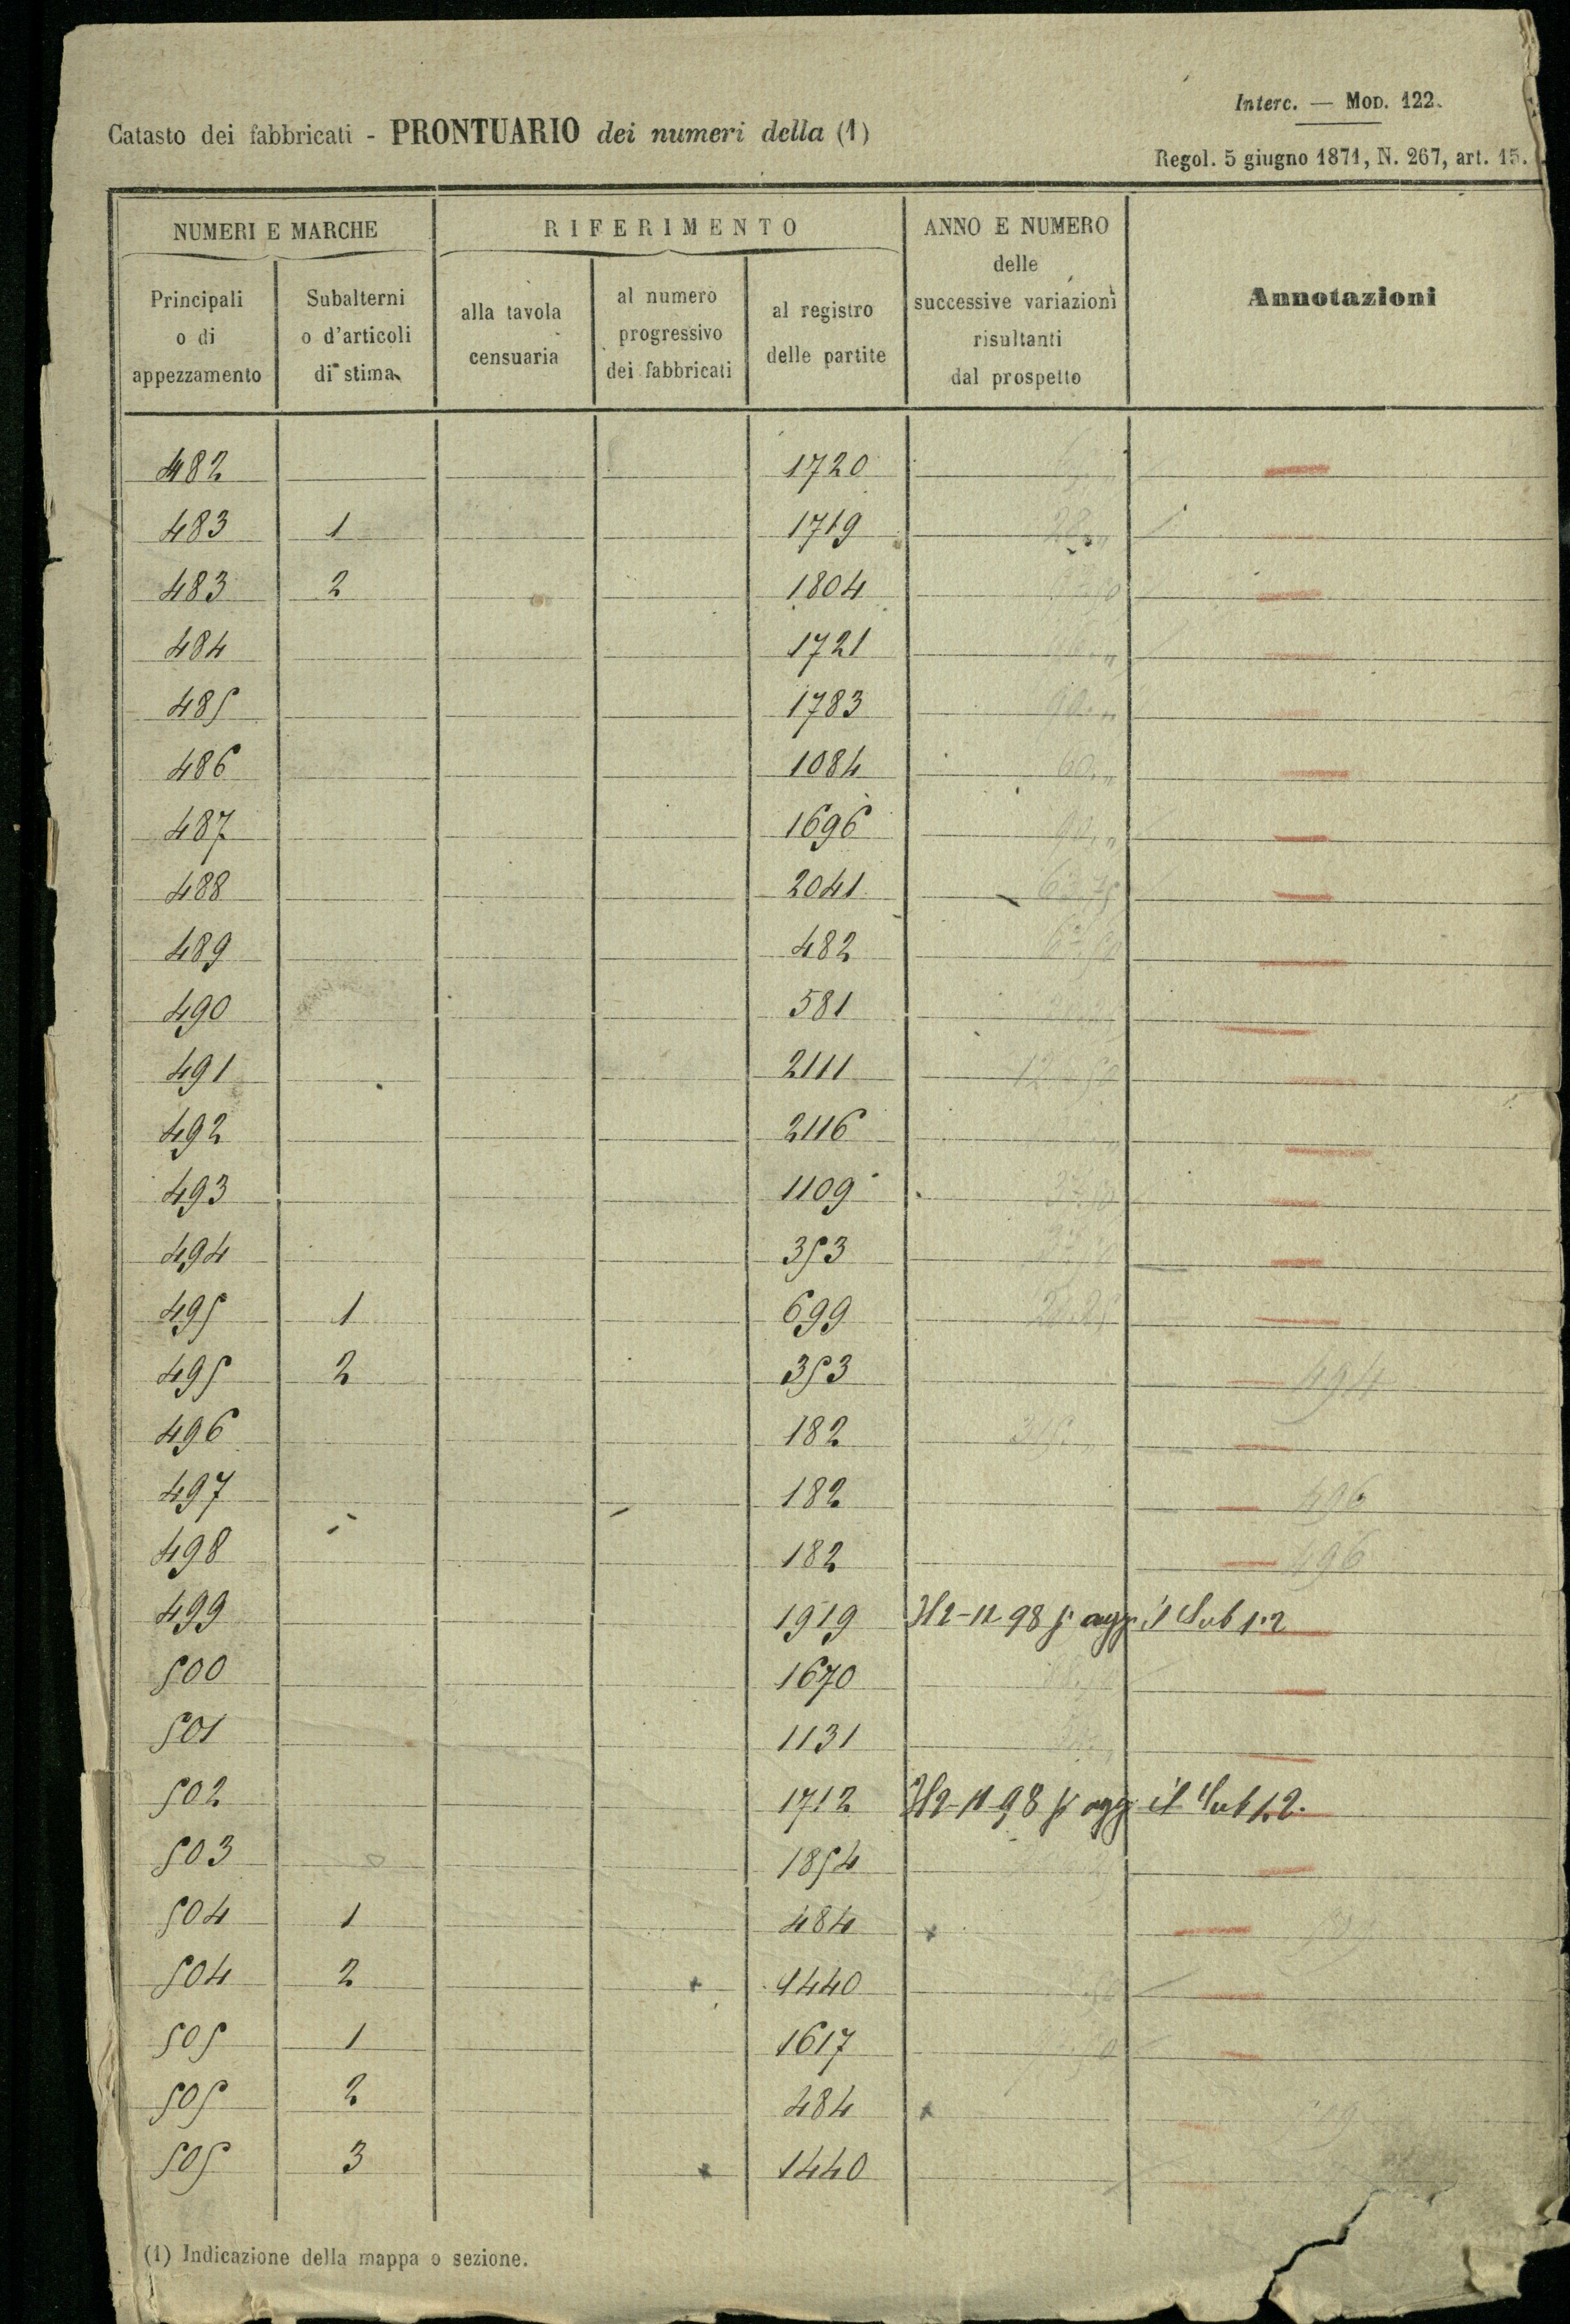 Interc. — Mod. 122.
Catasto dei fabbricati - PRONTUARIO dei numeri della (1)
Regol. 5 giugno 1871, N. 267, art. 15.
NUMERI E MARCHE RIFERIMENTO ANNO E NUMERO delle successive variazioni risultanti dal prospetto Annotazioni
Principali o di appezzamento Subalterni o d'articoli di stima alla tavola censuaria al numero progressivo dei fabbricati al registro delle partite
482 1720
483 1 1719
483 2 1804
484 1721
485 1783
486 1084 60.„
487 1696
488 2041
489 482
490 581
491 2111
492 2116
493 1109
494 353
495 1 699
495 2 353 494
496 182
497 182 496
498 182 496
499 1919 98 p. agg. il Sub 1.2
500 1670
501 1131
502 1712 98 p. agg. il Sub 1.2.
503 1854
504 1 484 x
504 2 x 1440
505 1 1617
505 2 484 x
505 3 x 1440
(1) Indicazione della mappa o sezione.